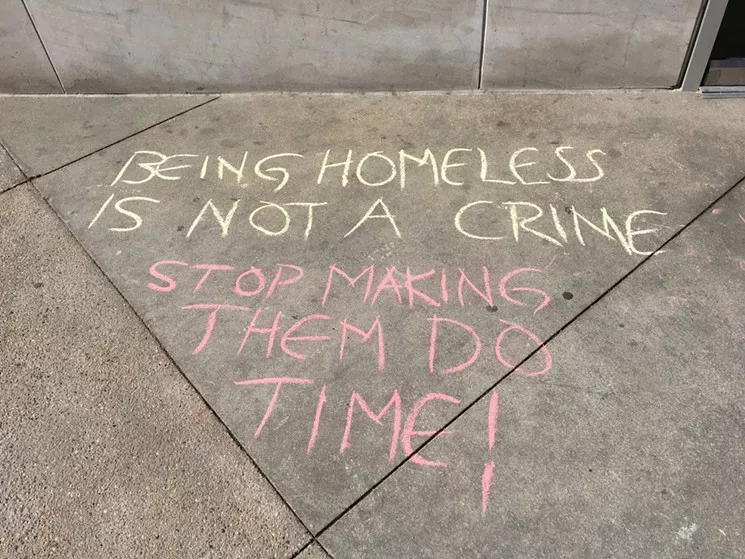 BEING HOMELESS
IS NOT A CRIME
STOP MAKING
THEM DO
TIME!